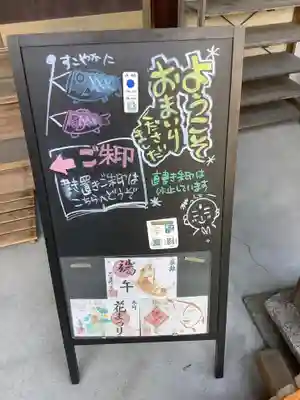 すこやかに
ようこそ
おまいり
くださいました
←ご朱印
書置きご朱印は
こちらへどうぞ
直書き朱印は
休止しています
端午
花まつり